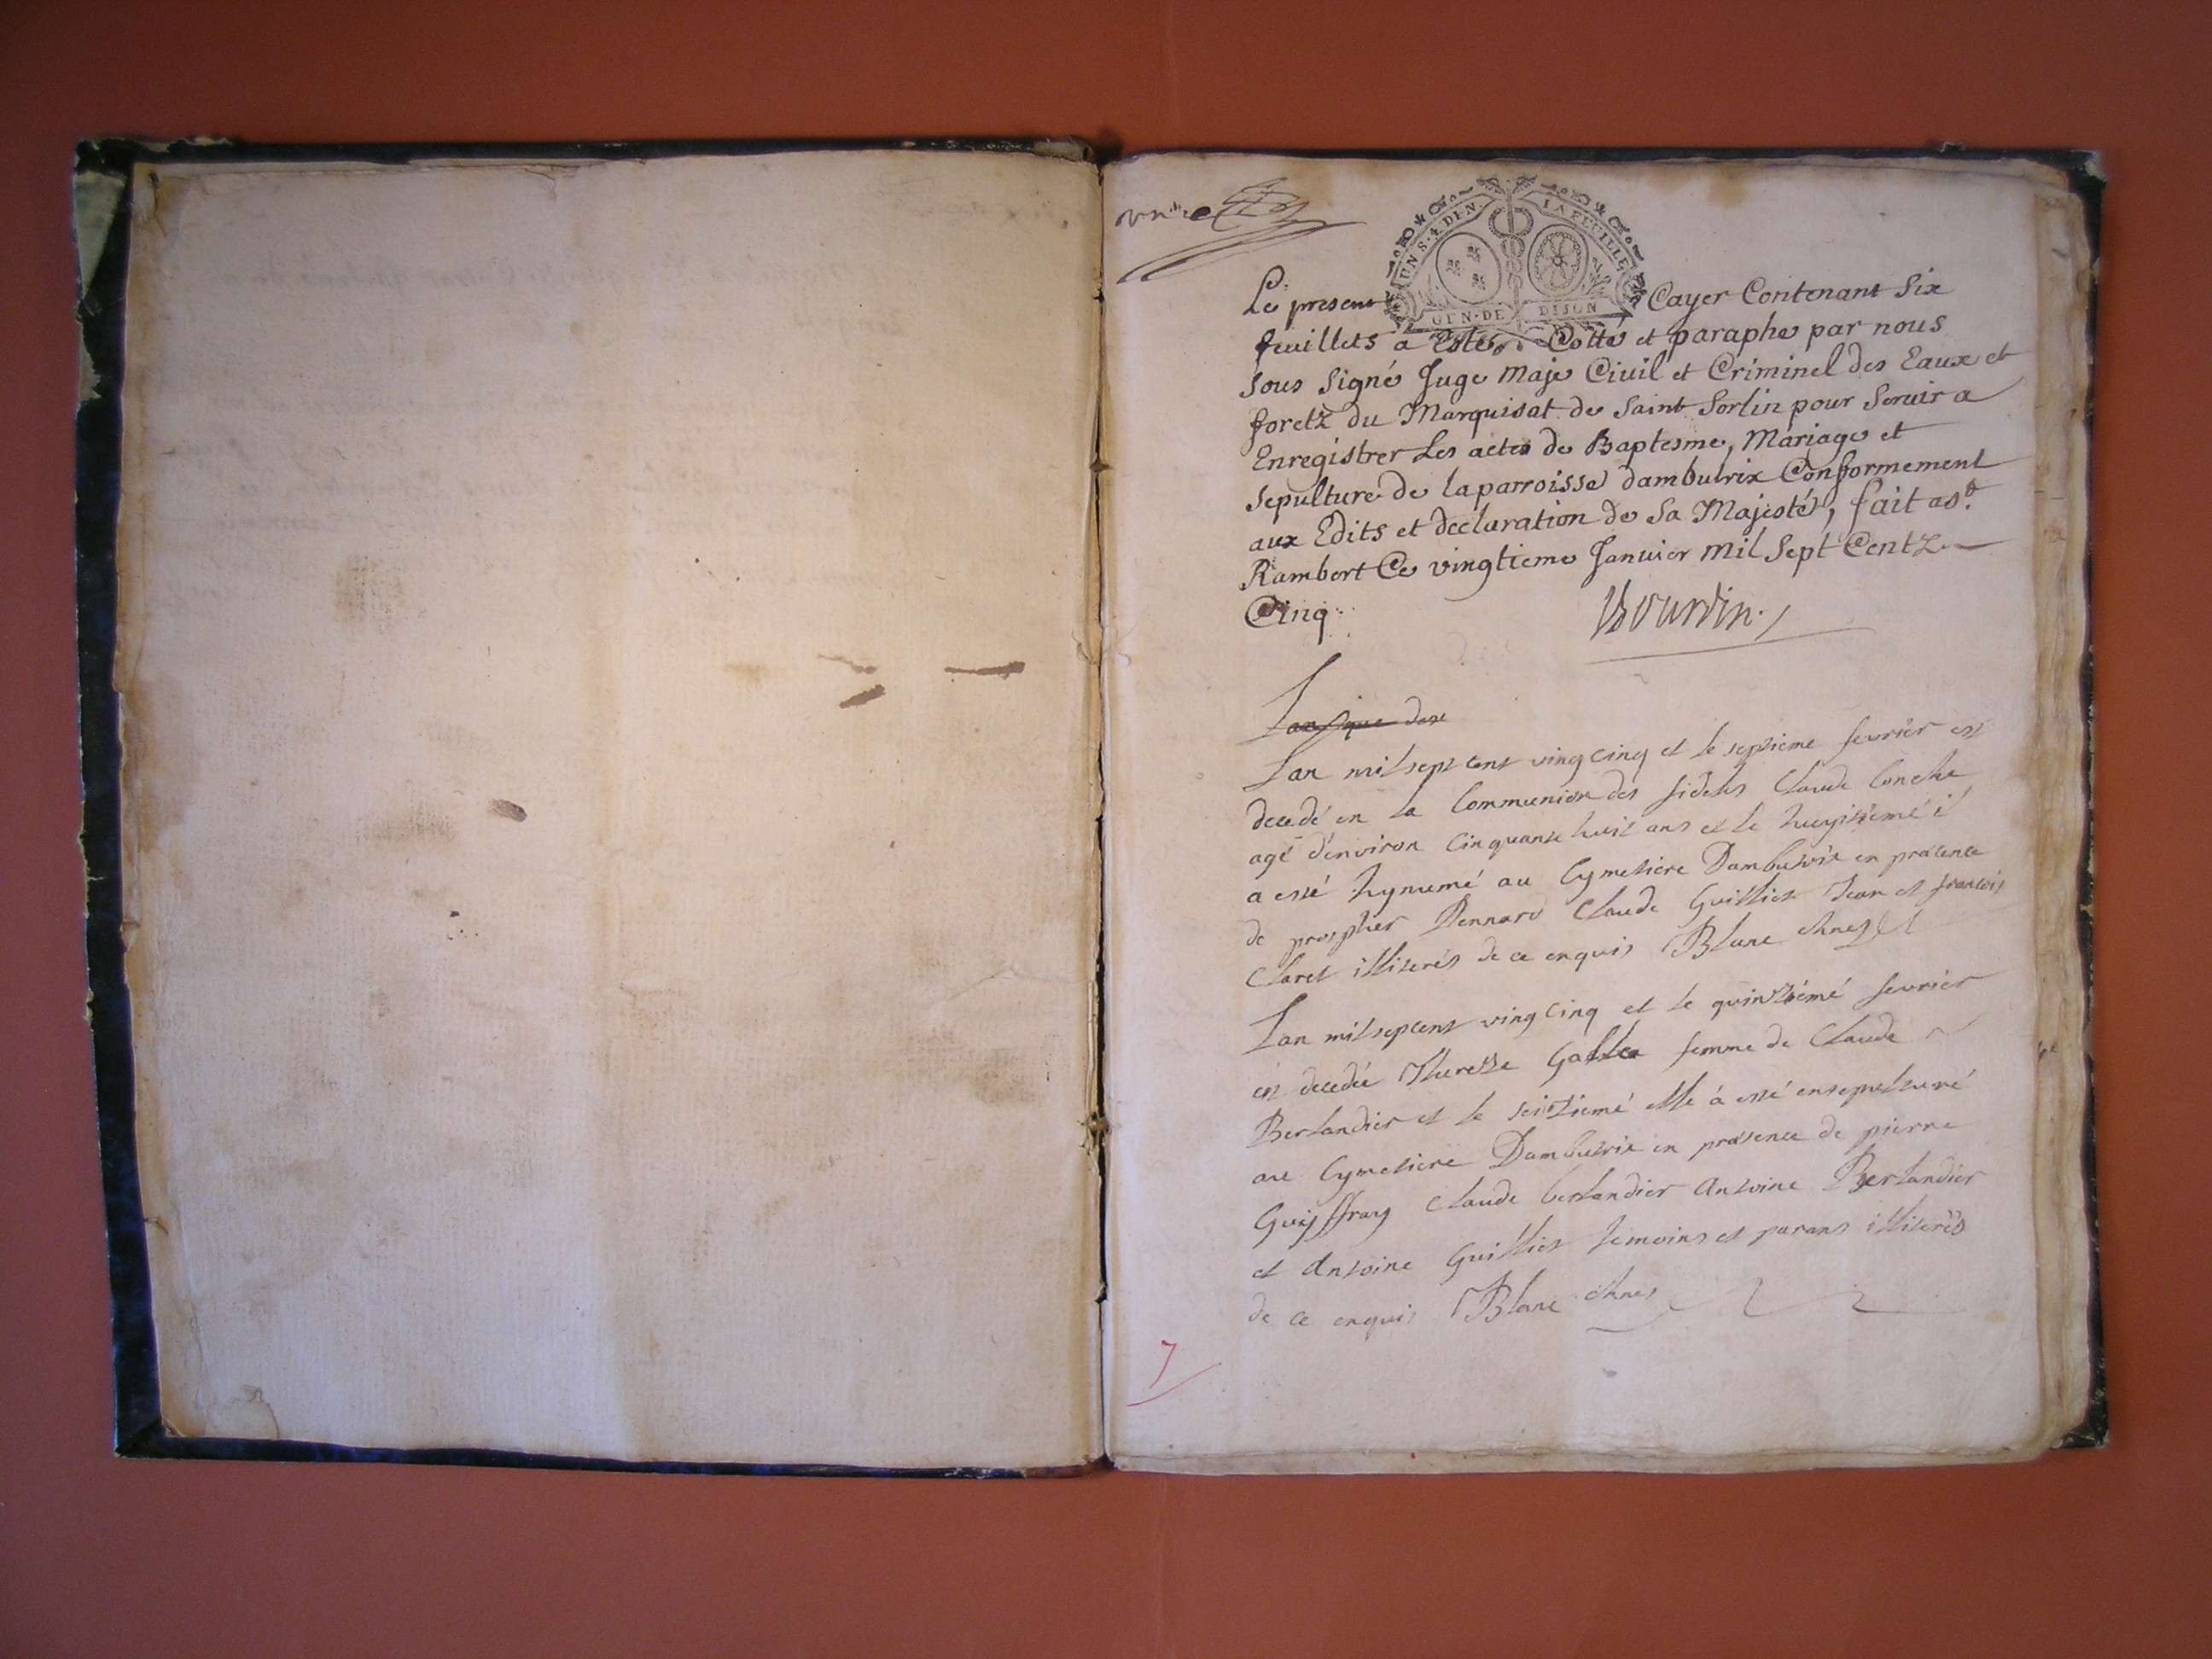 UN S. 4. DEN. LA FEUILLE
GEN. DE DIJON
Le present Cayer Contenant Six
feuillets a Esté Cotté et paraphé par nous
sous signé Juge Maje Civil et Criminel des Eaux et
foretz du Marquisat de Saint Sorlin pour Servir a
Enregistrer Les actes de Baptesme, Mariage et
Sepulture de la parroisse dambutrix Conformement
aux Edits et declaration de Sa Majesté, fait a St
Rambert Ce vingtieme Janvier mil Sept Centz
Cinq
Bourdin
Lan mil sept cent ving cinq et le septieme fevrier est
decedé en la Communion des fideles Claude Conche
agé d'environ Cinquante huit ans et le huyitiémé il
a esté hynumé au Cymetiere Dambutrix en præsence
de prosper Bennard Claude Guilliet Jean et francois
Claret illiterés de ce enquis Blanc
Lan mil sept cent ving cinq et le quinziémé fevrier
est decedée Therese femme de Claude
Berlandier et le seiziemé elle à esté ensepulturé
au Cymetiere Dambutrix en præsence de pierre
Guyffray Claude berlandier Antoine Berlandier
et Antoine Guilliet temoins et parans illiterés
de ce enquis Blanc
7